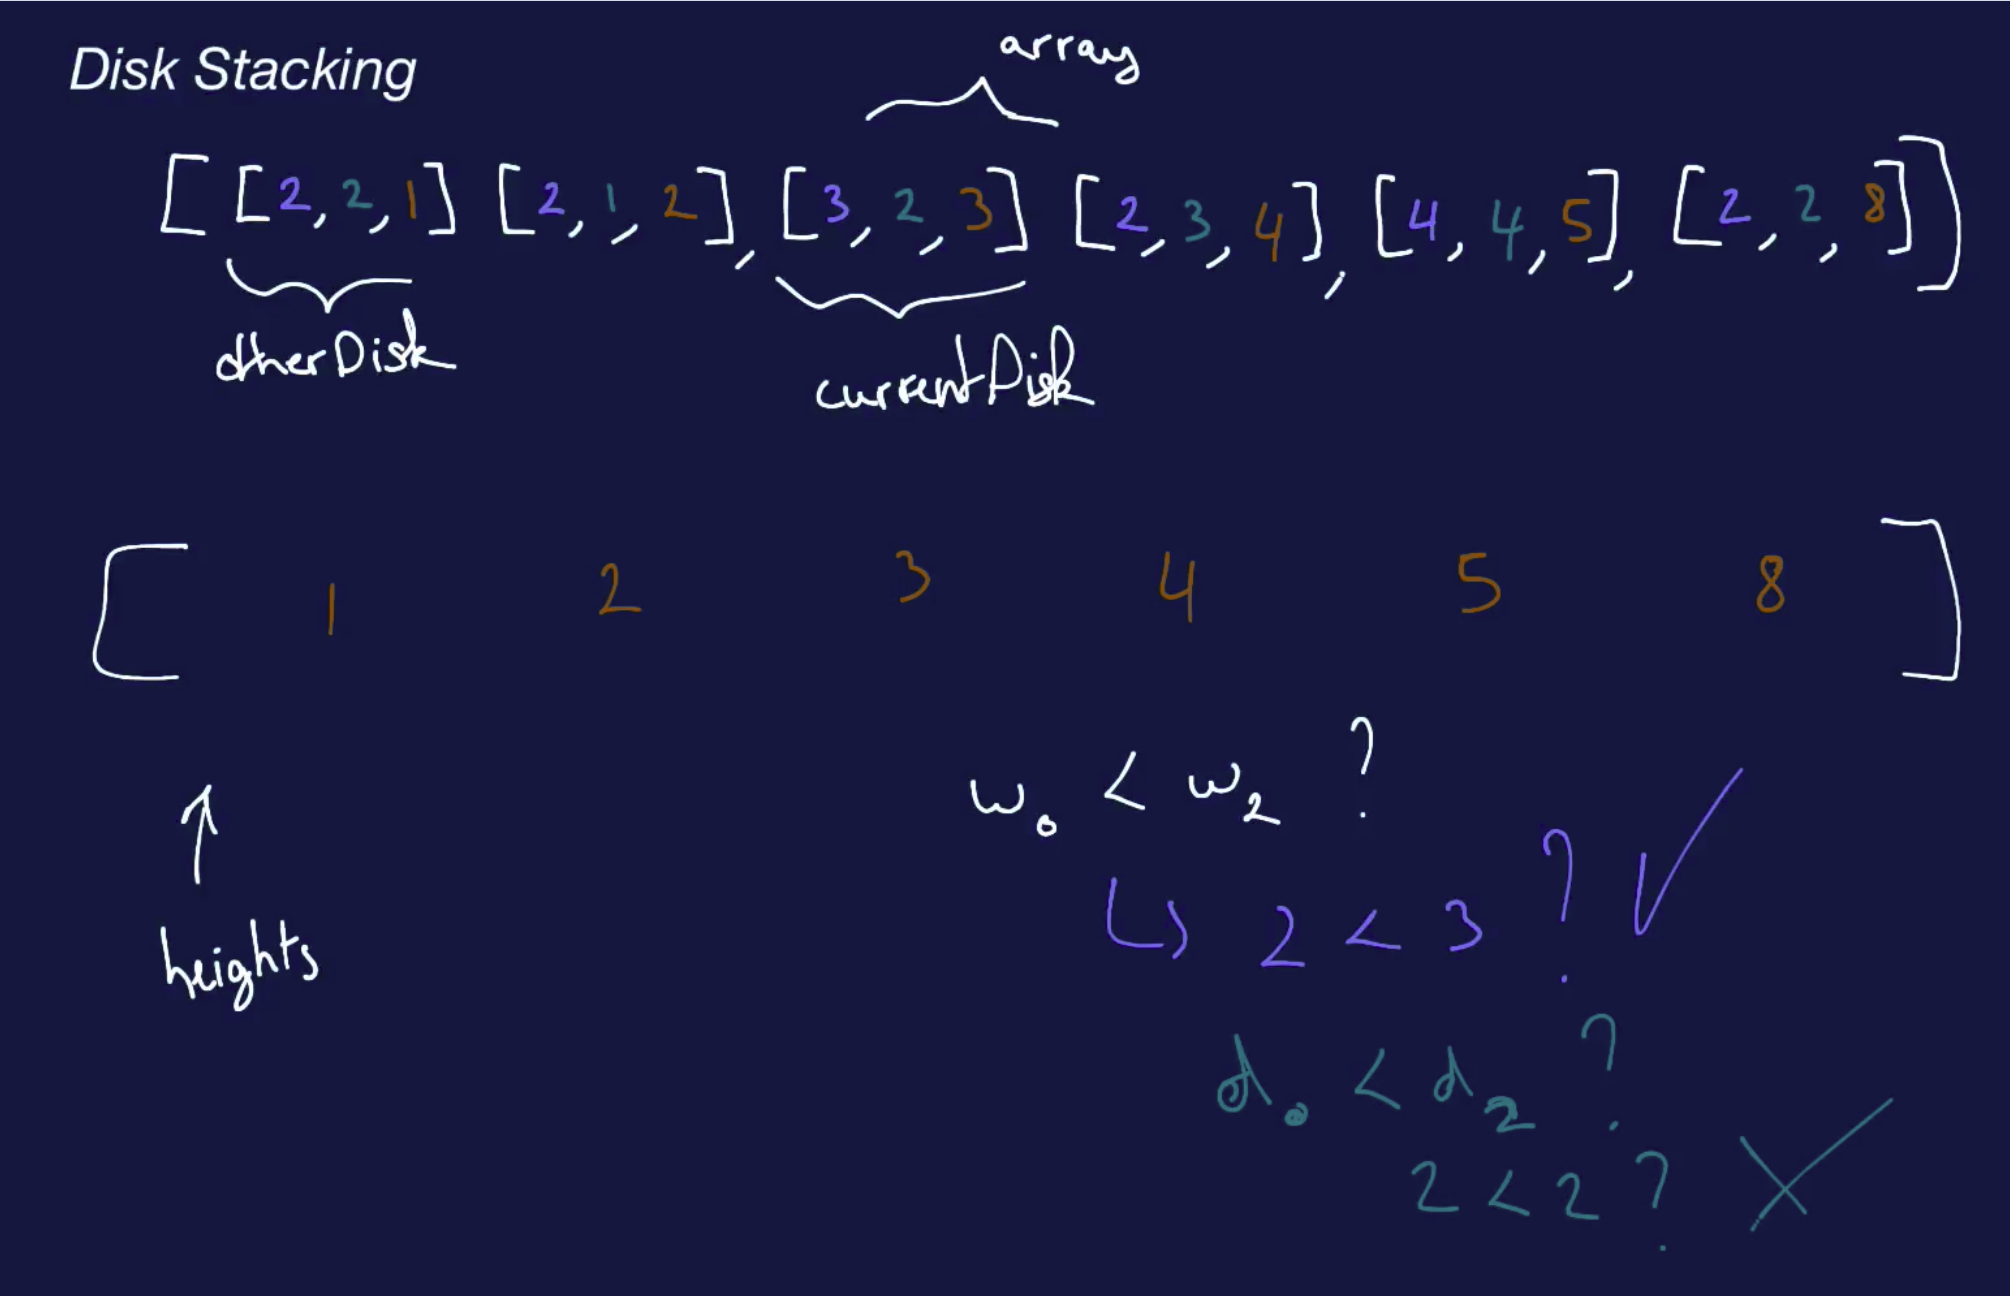 Disk Stacking
array
[ [2,2,1] [2,1,2], [3,2,3] [2,3,4], [4,4,5], [2,2,8] ]
otherDisk
currentDisk
[ 1 2 3 4 5 8 ]
w₀ < w₂ ?
↳ 2 < 3 ? ✓
heights
d₀ < d₂ ?
2 < 2 ? X